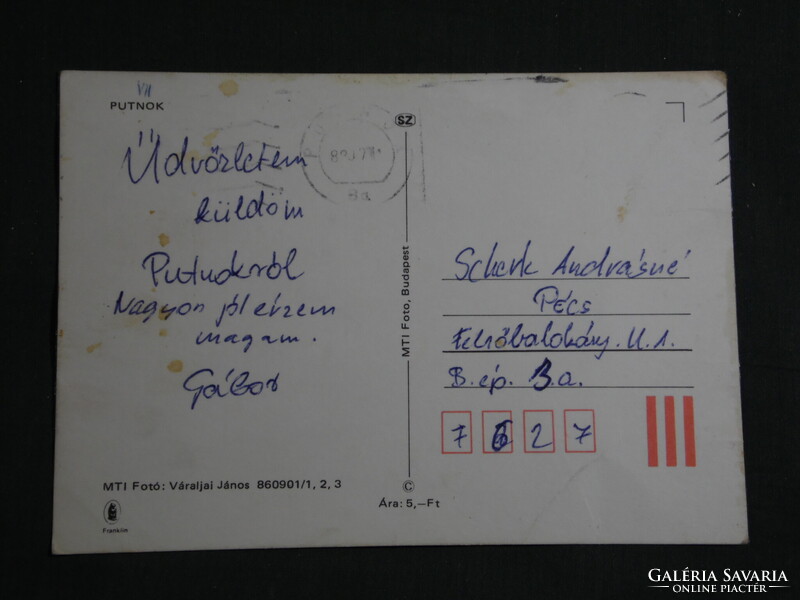 VII
PUTNOK
Üdvözletem
küldöm
Putnokról
Nagyon jól érzem
magam.
Gábor
MTI Fotó: Váraljai János 860901/1, 2, 3
Franklin
SZ
MTI Foto, Budapest
©
Ára: 5,—Ft
Scherk Andrásné
Pécs
Felsőbalokány. U. 1.
B. ép. 3.a.
7 6 2 7
GALÉRIA SAVARIA
ONLINE PIACTÉR